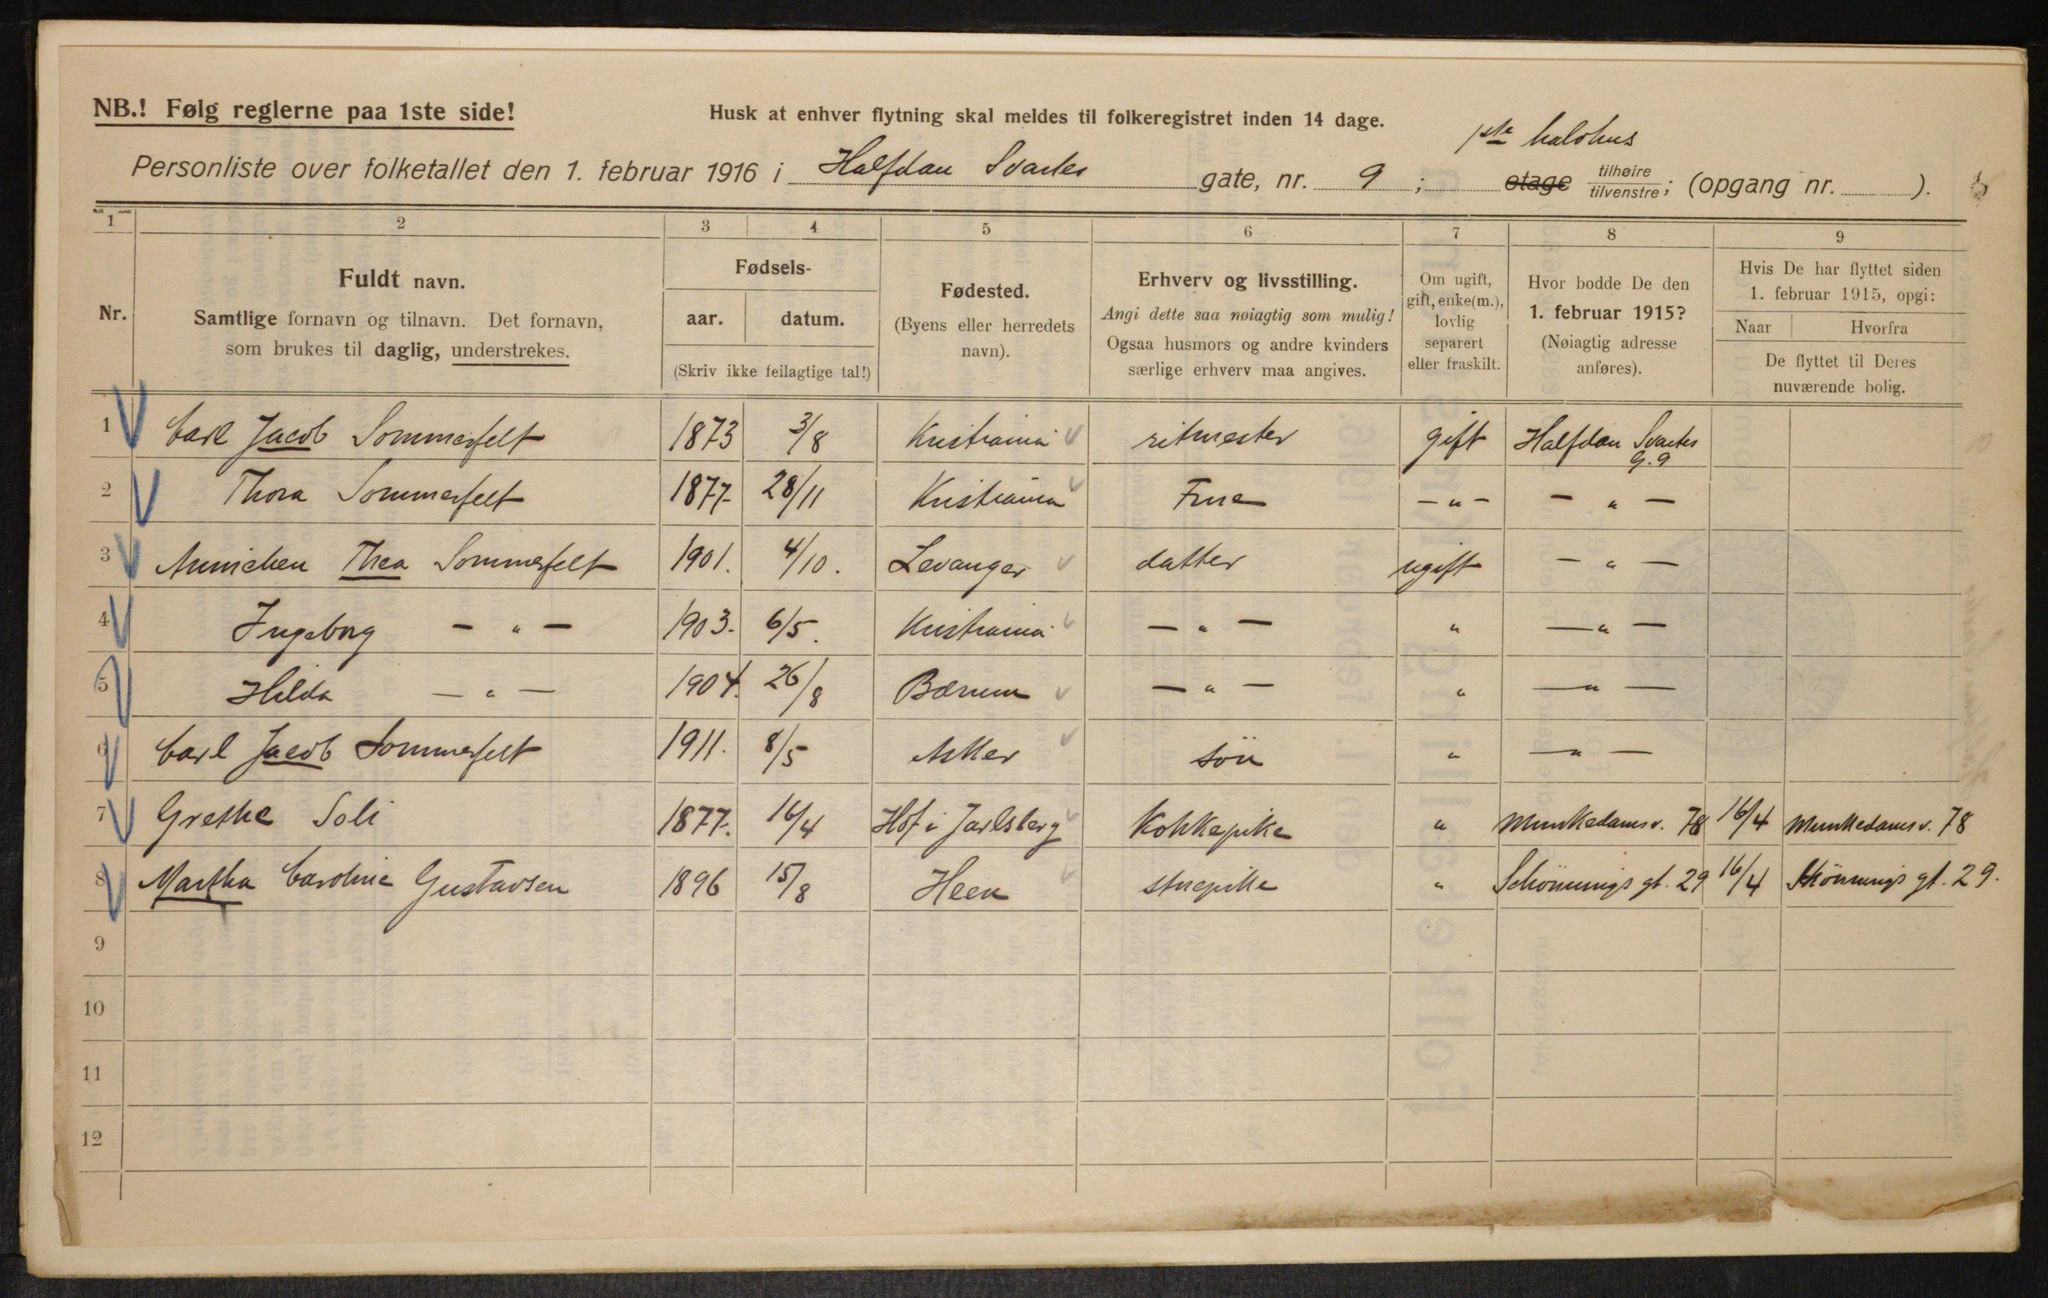 NB.! Følg reglerne paa 1ste side!
Husk at enhver flytning skal meldes til folkeregistret inden 14 dage.
1ste halvhus
Personliste over folketallet den 1. februar 1916 i Halfdan Svartes gate, nr. 9 ; etage tilhøire tilvenstre; (opgang nr. ).
1 2 3 4 5 6 7 8 9
Nr.
Fuldt navn.
Samtlige fornavn og tilnavn. Det fornavn,
som brukes til daglig, understrekes.
Fødsels-
aar. datum.
(Skriv ikke feilagtige tal!)
Fødested.
(Byens eller herredets
navn).
Erhverv og livsstilling.
Angi dette saa nøiagtig som mulig!
Ogsaa husmors og andre kvinders
særlige erhverv maa angives.
Om ugift,
gift, enke(m.),
lovlig
separert
eller fraskilt.
Hvor bodde De den
1. februar 1915?
(Nøiagtig adresse
anføres).
Hvis De har flyttet siden
1. februar 1915, opgi:
Naar Hvorfra
De flyttet til Deres
nuværende bolig.
1 Carl Jacob Sommerfelt 1873 3/8 Kristiania ritmester gift Halfdan Svartes G. 9
2 Thora Sommerfelt 1877 28/11 Kristiania Frue — " — — " —
3 Annichen Thea Sommerfelt 1901. 4/10. Levanger datter ugift — " —
4 Ingeborg — " — 1903. 6/5. Kristiania — " — " — " —
5 Hilda — " — 1904. 26/8 Bærum — " — " — " —
6 Carl Jacob Sommerfelt 1911. 8/5 Asker søn " — " —
7 Grethe Soli 1877. 16/4 Hof i Jarlsberg Kokkepike " Munkedamsv. 78 16/4 Munkedamsv. 78
8 Martha Caroline Gustavsen 1896 15/8 Heen stuepike " Schønnings gt. 29 16/4 Schønnings gt. 29.
9
10
11
12